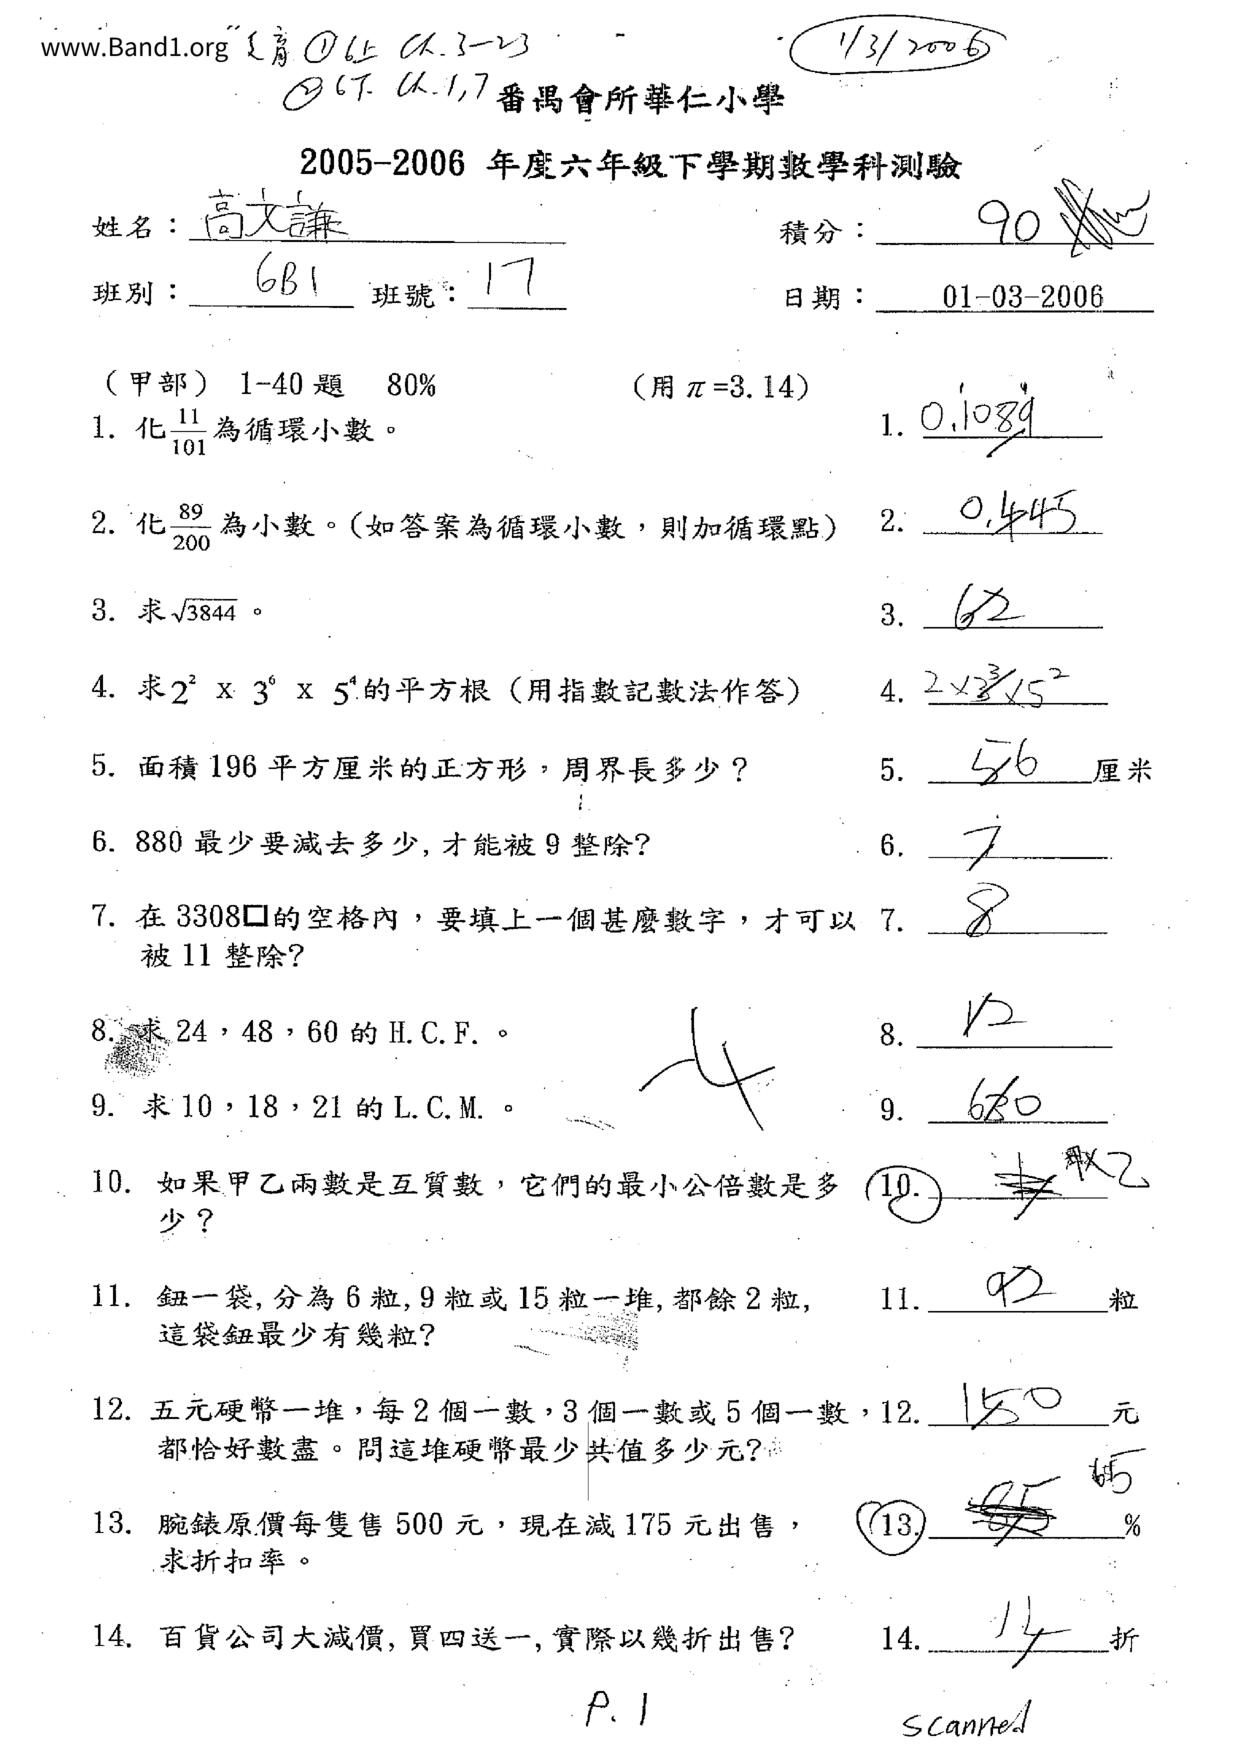 www.Band1.org 文育 ① 6上 Ch.3-23
1/3/2006
② 6下 Ch.1,7
番禺會所華仁小學
2005-2006 年度六年級下學期數學科測驗
姓名： 高文謙 積分： 90
班別： 6B1 班號： 17 日期： 01-03-2006
（甲部） 1-40 題 80% （用 π=3.14）
1. 化 11/101 為循環小數。 1. 0.1̇089̇
2. 化 89/200 為小數。（如答案為循環小數，則加循環點） 2. 0.445
3. 求√3844 。 3. 62
4. 求 2² x 3⁶ x 5⁴ 的平方根（用指數記數法作答） 4. 2×3³×5²
5. 面積 196 平方厘米的正方形，周界長多少？ 5. 56 厘米
6. 880 最少要減去多少, 才能被 9 整除? 6. 7
7. 在 3308□的空格內，要填上一個甚麼數字，才可以 7. 8
被 11 整除?
8. 求 24，48，60 的 H.C.F. 。 8. 12
-4
9. 求 10，18，21 的 L.C.M. 。 9. 630
10. 如果甲乙兩數是互質數，它們的最小公倍數是多 10. 甲×乙
少？
11. 鈕一袋, 分為 6 粒, 9 粒或 15 粒一堆, 都餘 2 粒, 11. 92 粒
這袋鈕最少有幾粒?
12. 五元硬幣一堆，每 2 個一數，3 個一數或 5 個一數， 12. 150 元
都恰好數盡。問這堆硬幣最少共值多少元?
65
13. 腕錶原價每隻售 500 元，現在減 175 元出售， 13. %
求折扣率。
14. 百貨公司大減價, 買四送一, 實際以幾折出售? 14. 折
P. 1
scanned